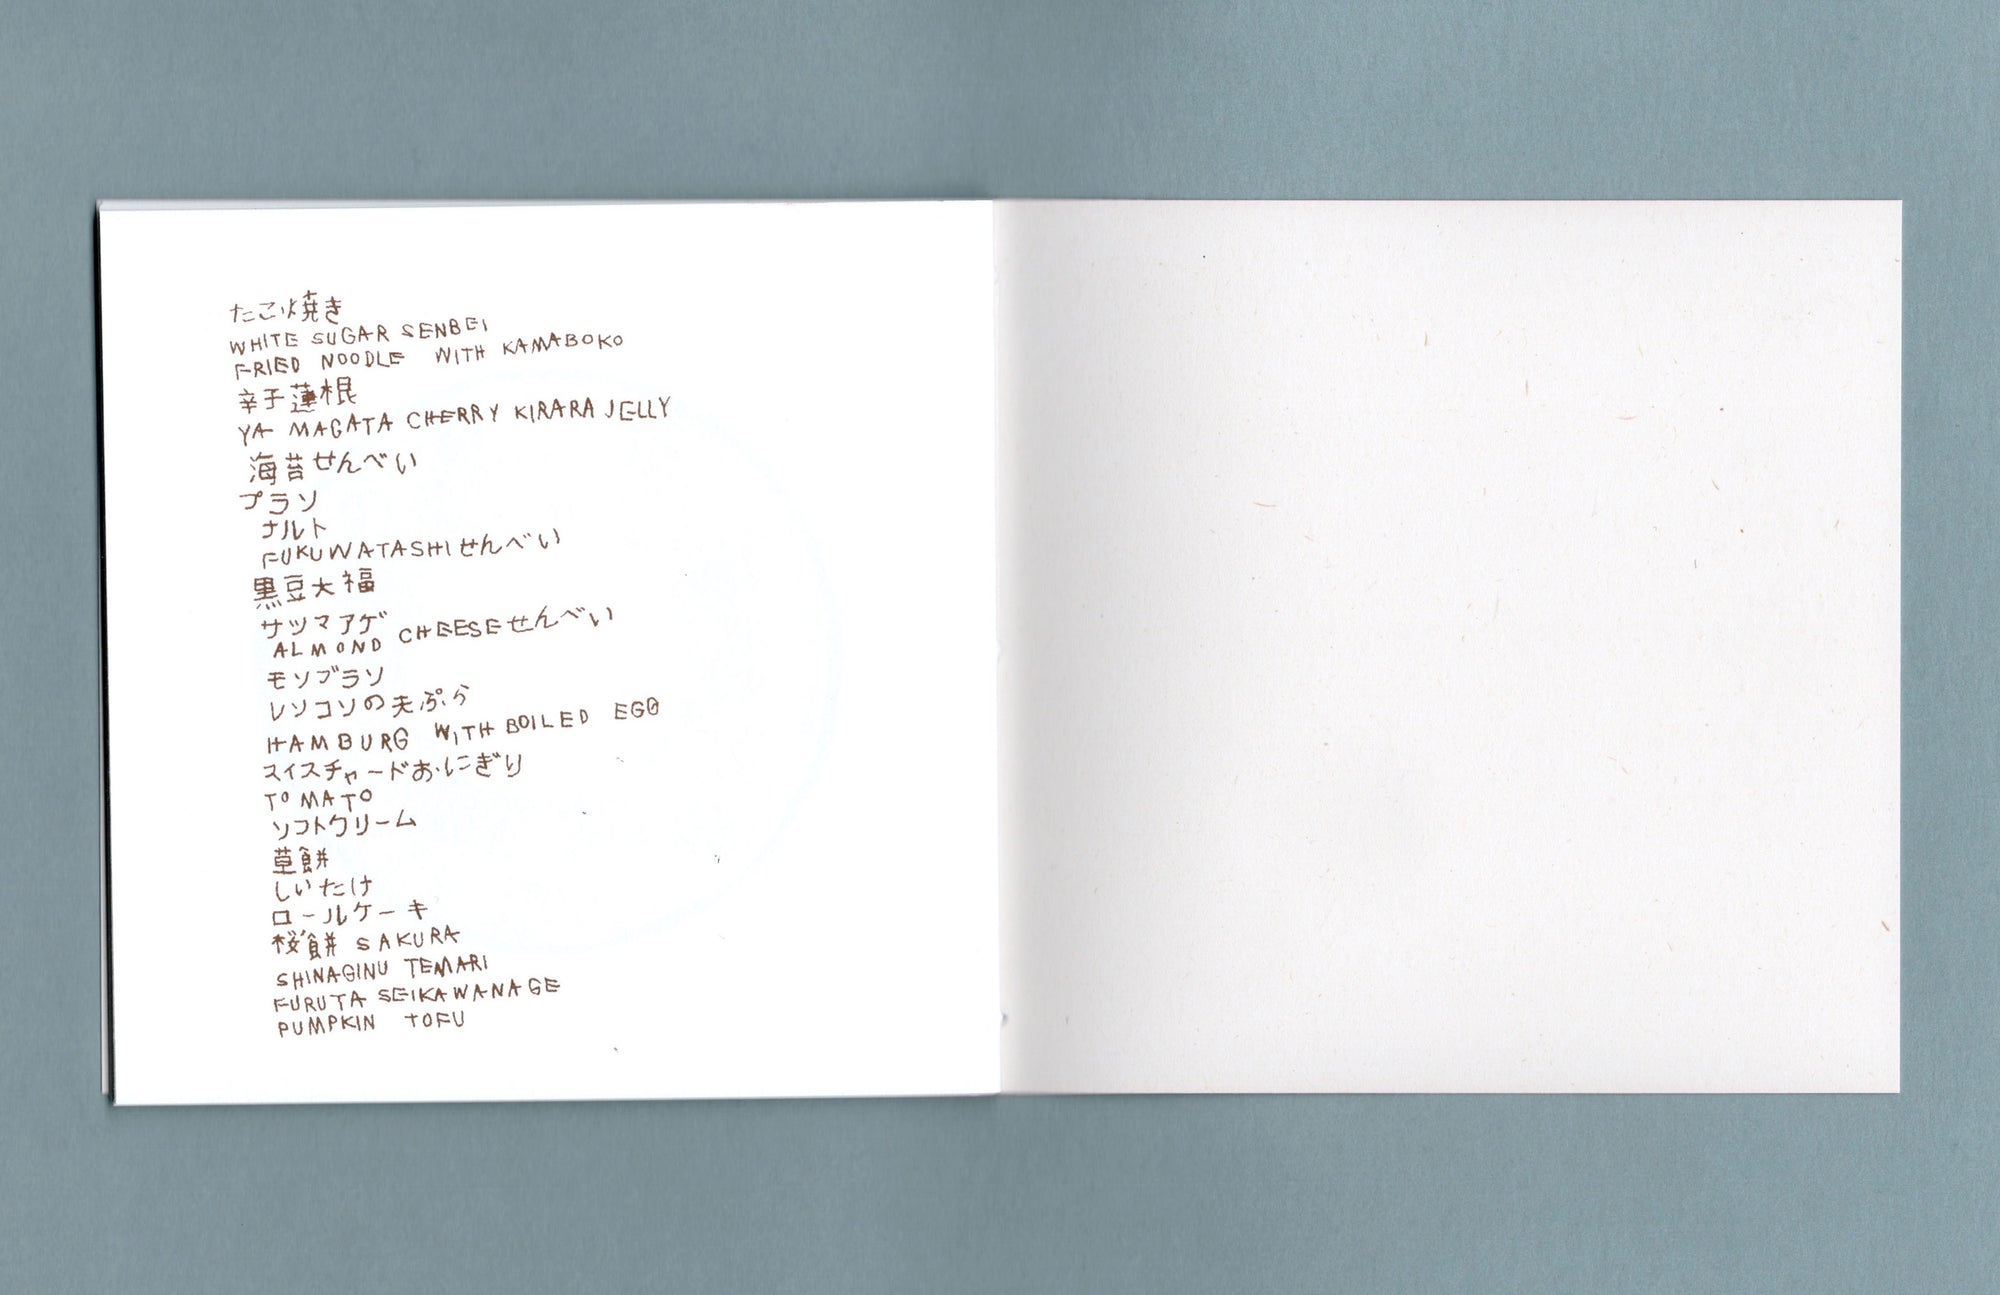 たこ焼き
WHITE SUGAR SENBEI
FRIED NOODLE WITH KAMABOKO
辛子蓮根
YAMAGATA CHERRY KIRARA JELLY
海苔せんべい
プラソ
ナルト
FUKUWATASHIせんべい
黒豆大福
サツマアゲ
ALMOND CHEESEせんべい
モソブラソ
レソコソの天ぷら
HAMBURG WITH BOILED EGG
スイスチャードおにぎり
TOMATO
ソフトクリーム
草餅
しいたけ
ロールケーキ
桜餅 SAKURA
SHINAGINU TEMARI
FURUTA SEIKA WANAGE
PUMPKIN TOFU